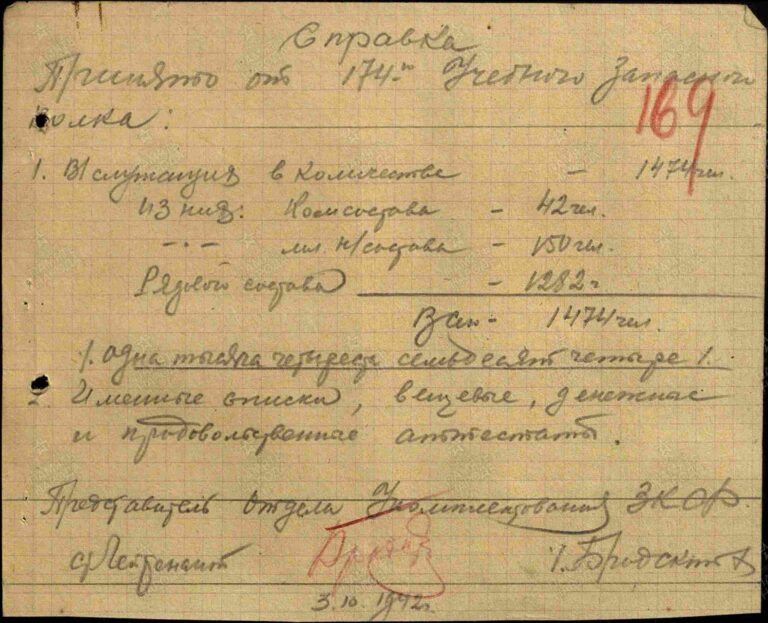 Справка
Принято от 174го Учебного Запасного
Полка:
169
1. В/служащих в количестве – 1474 чел.
из них: Комсостава – 42 чел.
–·– мл. н/состава – 150 чел.
Рядового состава – 1282 ч
Всего – 1474 чел.
/. одна тысяча четыреста семьдесят четыре /.
2. Именные списки, вещевые, денежные
и продовольственные аттестаты.
Представитель отдела Укомплектования ЗКФ.
ст Лейтенант /. Бродский /
3.10.1942г.